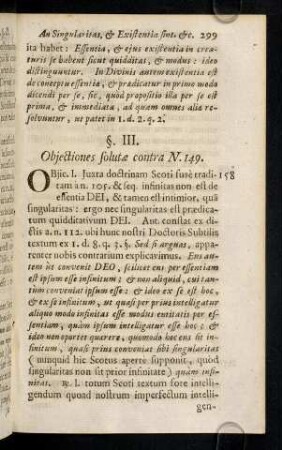 An Singularitas, & Existentia sint. &c. 299
ita habet: Essentia, & ejus existentia in crea-
turis se habent sicut quidditas, & modus: ideo
distinguuntur. In Divinis autem existentia est
de conceptu essentiæ, & prædicatur in primo modo
dicendi per se, sic, quòd propositio illa per se est
prima, & immediata, ad quam omnes aliæ re-
solvuntur, ut patet in 1. d. 2. q. 2.
§. III.
Objectiones solutæ contra N. 149.
OBjic. I. Juxta doctrinam Scoti fusè tradi- 158
tam à n. 105. & seq. infinitas non est de
essentia DEI, & tamen est intimior, quâ
singularitas: ergo nec singularitas est prædica-
tum quidditativum DEI. Ant. constat ex di-
ctis à n. 112. ubi hunc nostri Doctoris Subtilis
textum ex 1. d. 8. q. 3. §. Sed si arguas, appa-
renter nobis contrarium explicavimus. Ens au-
tem ut convenit DEO, scilicet ens per essentiam
est ipsum esse infinitum; & non aliquid, cui tan-
tùm conveniat ipsum esse: & ideo ex se est hoc,
& ex se infinitum, ut quasi per prius intelligatur
aliquo modo infinitas esse modus entitatis per es-
sentiam, quàm ipsum intelligatur esse hoc: &
ideo non oportet quærere, quomodo hoc ens sit in-
finitum, quasi prius conveniat sibi singularitas
( nunquid hîc Scotus apertè supponit, quòd
singularitas non sit prior infinitate ) quàm infi-
nitas. ℞. I. totum Scoti textum fore intelli-
gendum quoad nostrum imperfectum intelli-
gen-